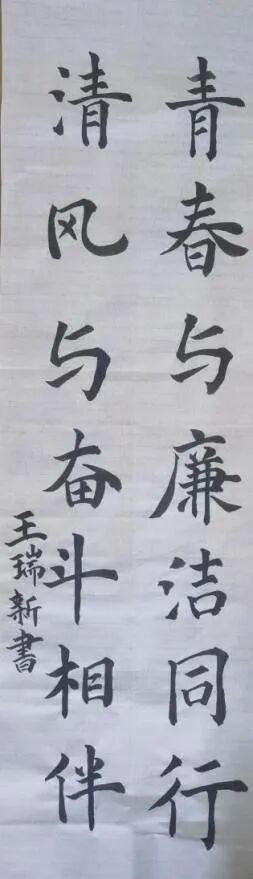 青春与廉洁同行
清风与奋斗相伴
王瑞新書